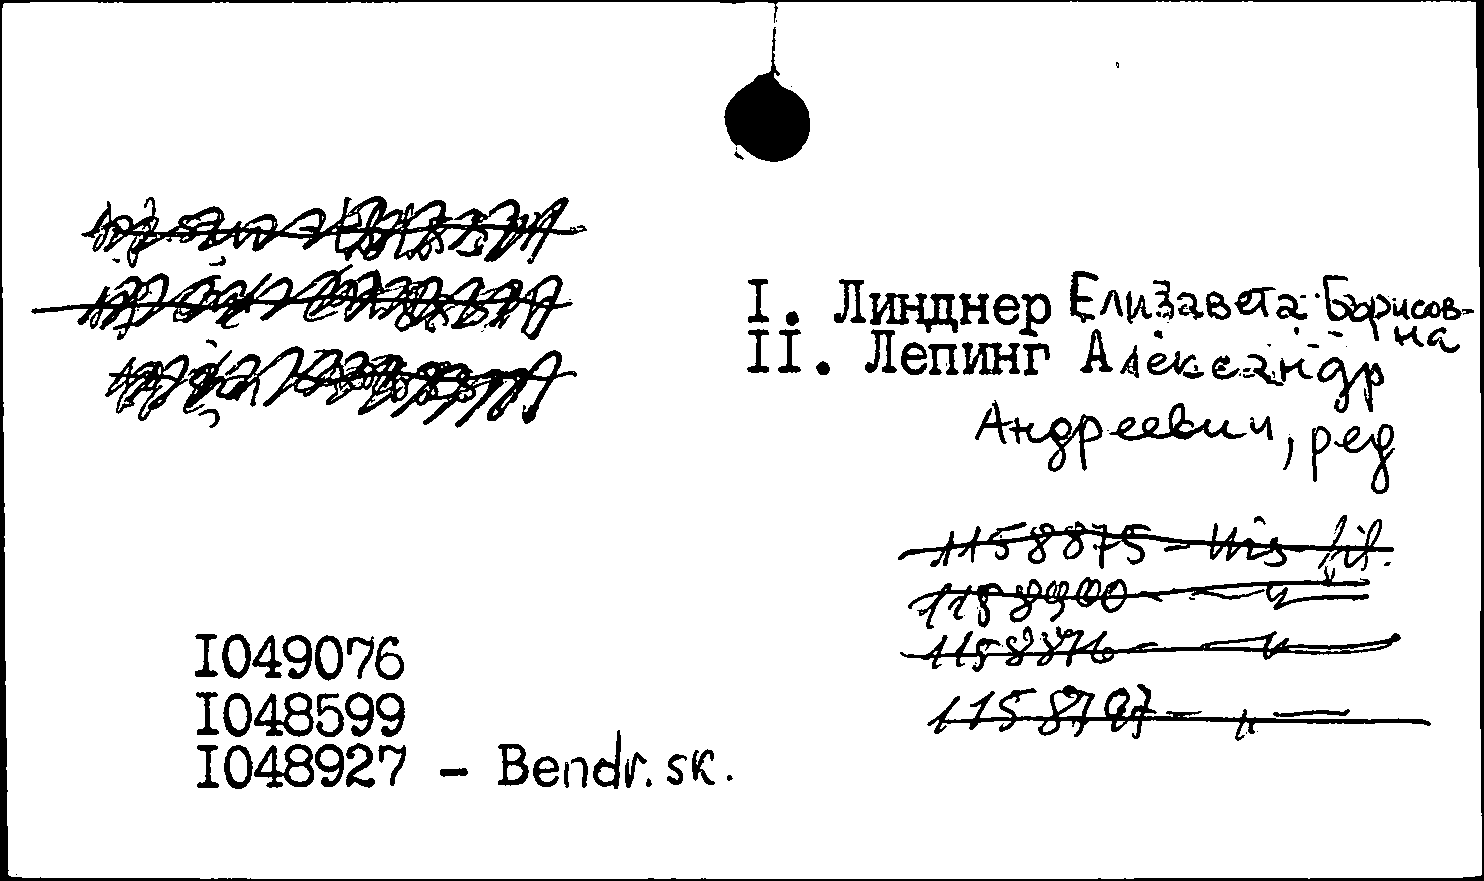 I. Линднер Елизавета Борисов-
на
II. Лепинг Александр
Андреевич, ред
1158875 - Vis fil.
1158900 - "
1158876 - "
1158797 - "
I049076
I048599
I048927 - Bendr. sk.